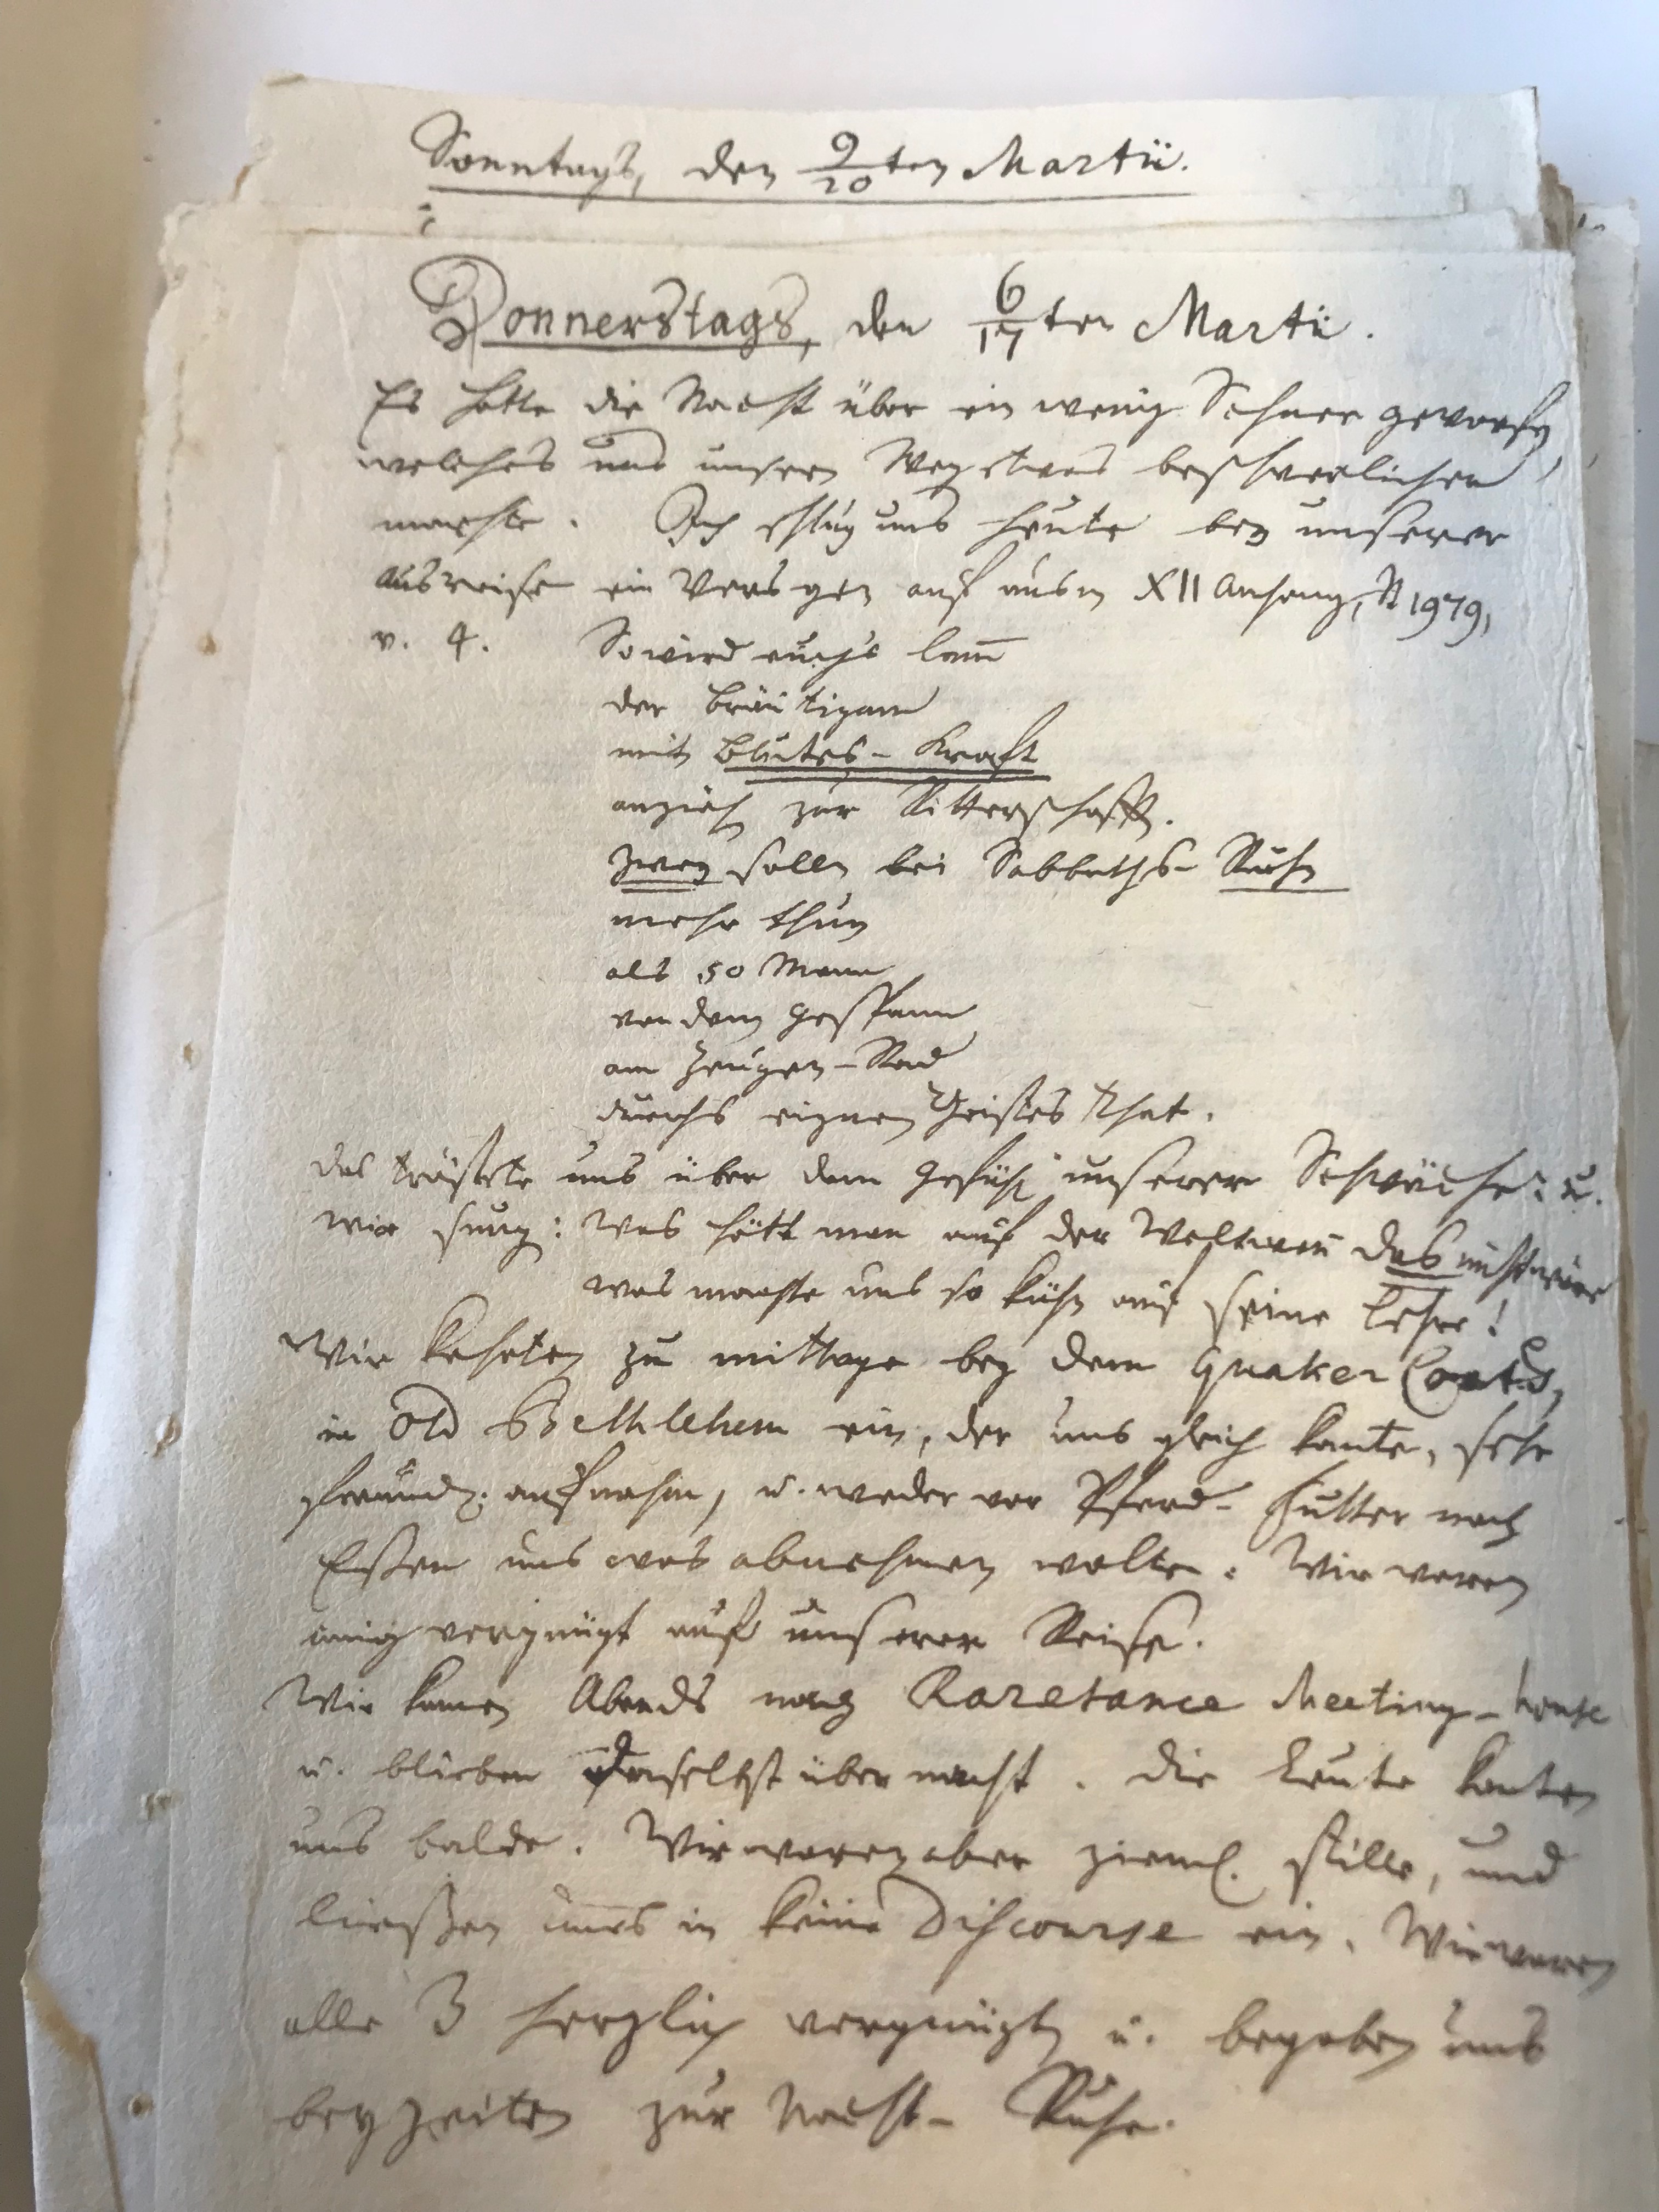 Sonntags, den 9/20ten Martii.
Donnerstags, den 6/17ten Martii.
Es hatte die Nacht über ein wenig Schnee geworfen,
welches uns unsern Weg etwas beschwerlicher
machte. Ich schlug uns heute bey unserer
ausreise ein Versgen auf ausm XII Anhang, N 1979,
v. 4. So wird euch's lam̄
der Bräutigam
mit Blutes-Kraft
anziehn zur Ritterschafft.
Zwey solln bei Sabbaths-Ruhn
mehr thun
als 50 Mann
von dem Gespann
am Zeugen-Rad
durchs eignen Geistes That.
das tröstete uns über dem Gefühl unserer Schwäche: u.
wir sung: Was hätt man auf der Welt wen̄ das nicht wäre
was machte uns so kühn auf seine Lehre!
Wir kehrten zu mittage bey dem Quaker Coats,
in Old Bethlehem ein, der uns gleich kante, sehr
freundl. aufnahm, u. weder vor Pferd-Futter noch
Essen uns was abnehmen wolte. Wir waren
innig vergnügt auf unserer Reise.
Wir kamen Abends nach Raretance Meeting-house
u. blieben daselbst über nacht. Die Leute kanten
uns balde. Wir waren aber zieml. stille, und
liessen uns in keine Discourse ein. Wir waren
alle 3 herzlich vergnügt u. begaben uns
bey zeiten zur Nacht-Ruhe.